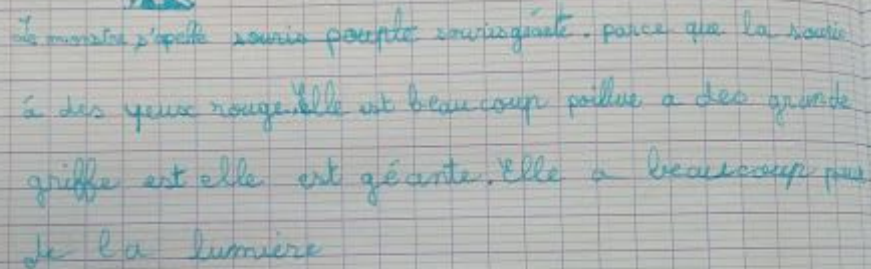 Le monstre s'apelle souris poupte sourisgéante. parce que la souris
à des yeux rouge. Elle est beaucoup poillue a des grande
griffe est elle est géante. Elle a beaucoup peur
de la lumière